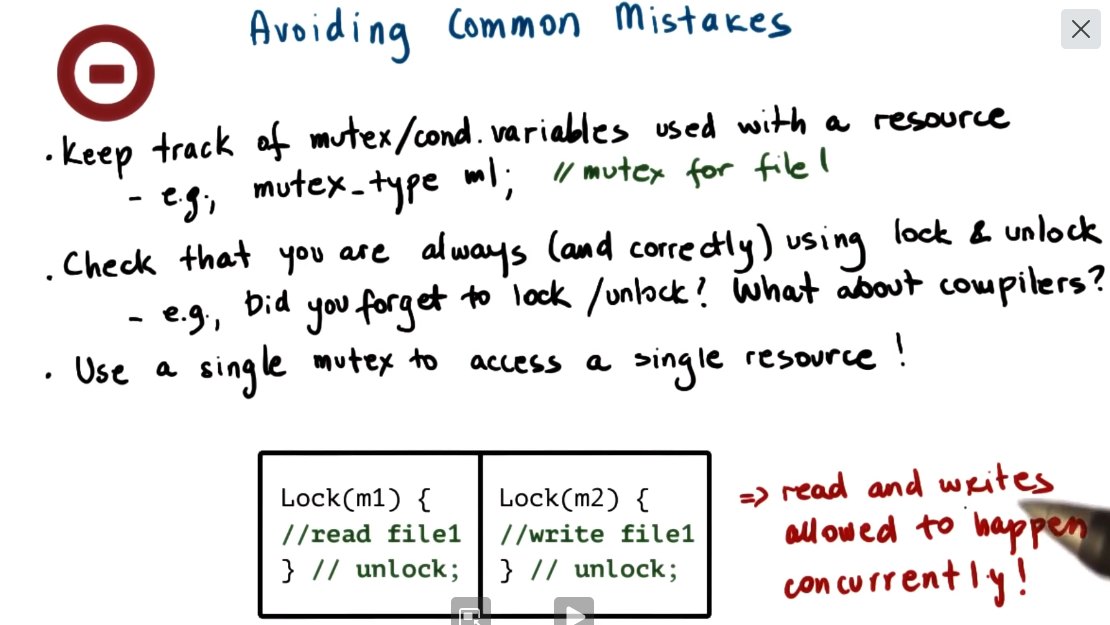 Avoiding Common Mistakes
• Keep track of mutex/cond. variables used with a resource
- e.g., mutex_type m1; // mutex for file 1
• Check that you are always (and correctly) using lock & unlock
- e.g., Did you forget to lock /unlock? What about compilers?
• Use a single mutex to access a single resource!
Lock(m1) {
//read file1
} // unlock;
Lock(m2) {
//write file1
} // unlock;
=> read and writes
allowed to happen
concurrently!